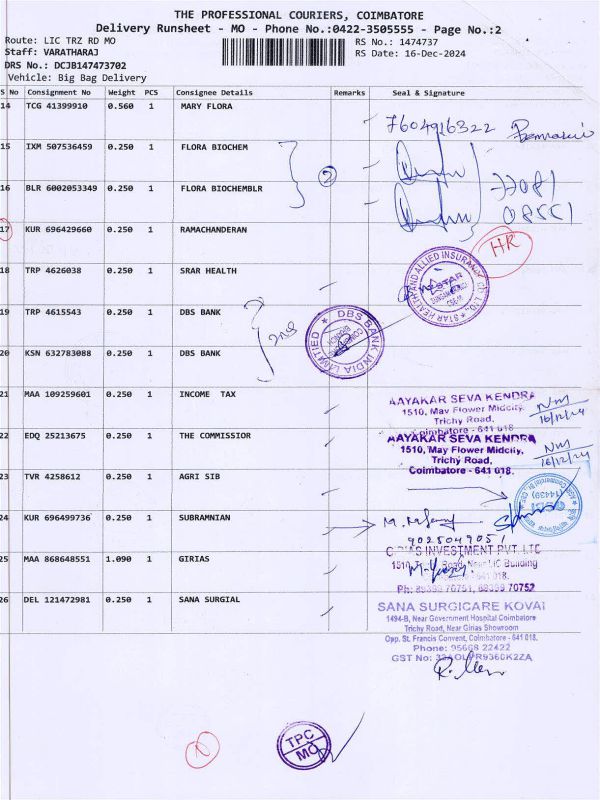 THE PROFESSIONAL COURIERS, COIMBATORE
Delivery Runsheet - MO - Phone No.:0422-3505555 - Page No.:2
Route: LIC TRZ RD MO
Staff: VARATHARAJ
DRS No.: DCJB147473702
Vehicle: Big Bag Delivery
RS No.: 1474737
RS Date: 16-Dec-2024
S No Consignment No Weight PCS Consignee Details Remarks Seal & Signature
14 TCG 41399910 0.560 1 MARY FLORA
7604916322
15 IXM 507536459 0.250 1 FLORA BIOCHEM
2
16 BLR 6002053349 0.250 1 FLORA BIOCHEMBLR
77081
08551
17 KUR 696429660 0.250 1 RAMACHANDERAN
HR
18 TRP 4626038 0.250 1 SRAR HEALTH
STAR HEALTH AND ALLIED INSURANCE CO. LTD.
STAR
19 TRP 4615543 0.250 1 DBS BANK
DBS BANK INDIA LIMITED
20 KSN 632783088 0.250 1 DBS BANK
21 MAA 109259601 0.250 1 INCOME TAX
AAYAKAR SEVA KENDRA
1510, May Flower Midcity,
Trichy Road,
Coimbatore - 641 018
NM
16/12/24
22 EDQ 25213675 0.250 1 THE COMMISSIOR
AAYAKAR SEVA KENDRA
1510, May Flower Midcity,
Trichy Road,
Coimbatore - 641 018.
NM
16/12/24
23 TVR 4258612 0.250 1 AGRI SIB
24 KUR 696499736 0.250 1 SUBRAMNIAN
9025049051
25 MAA 868648551 1.090 1 GIRIAS
GIRIAS INVESTMENT PVT. LTD
Road, Near LIC Building
- 641 018.
26 DEL 121472981 0.250 1 SANA SURGIAL
SANA SURGICARE KOVAI
1494-B, Near Government Hospital Coimbatore
Trichy Road, Near Girias Showroom
Opp. St. Francis Convent, Coimbatore - 641 018.
Phone: 95668 22422
GST No:
TPC
MO